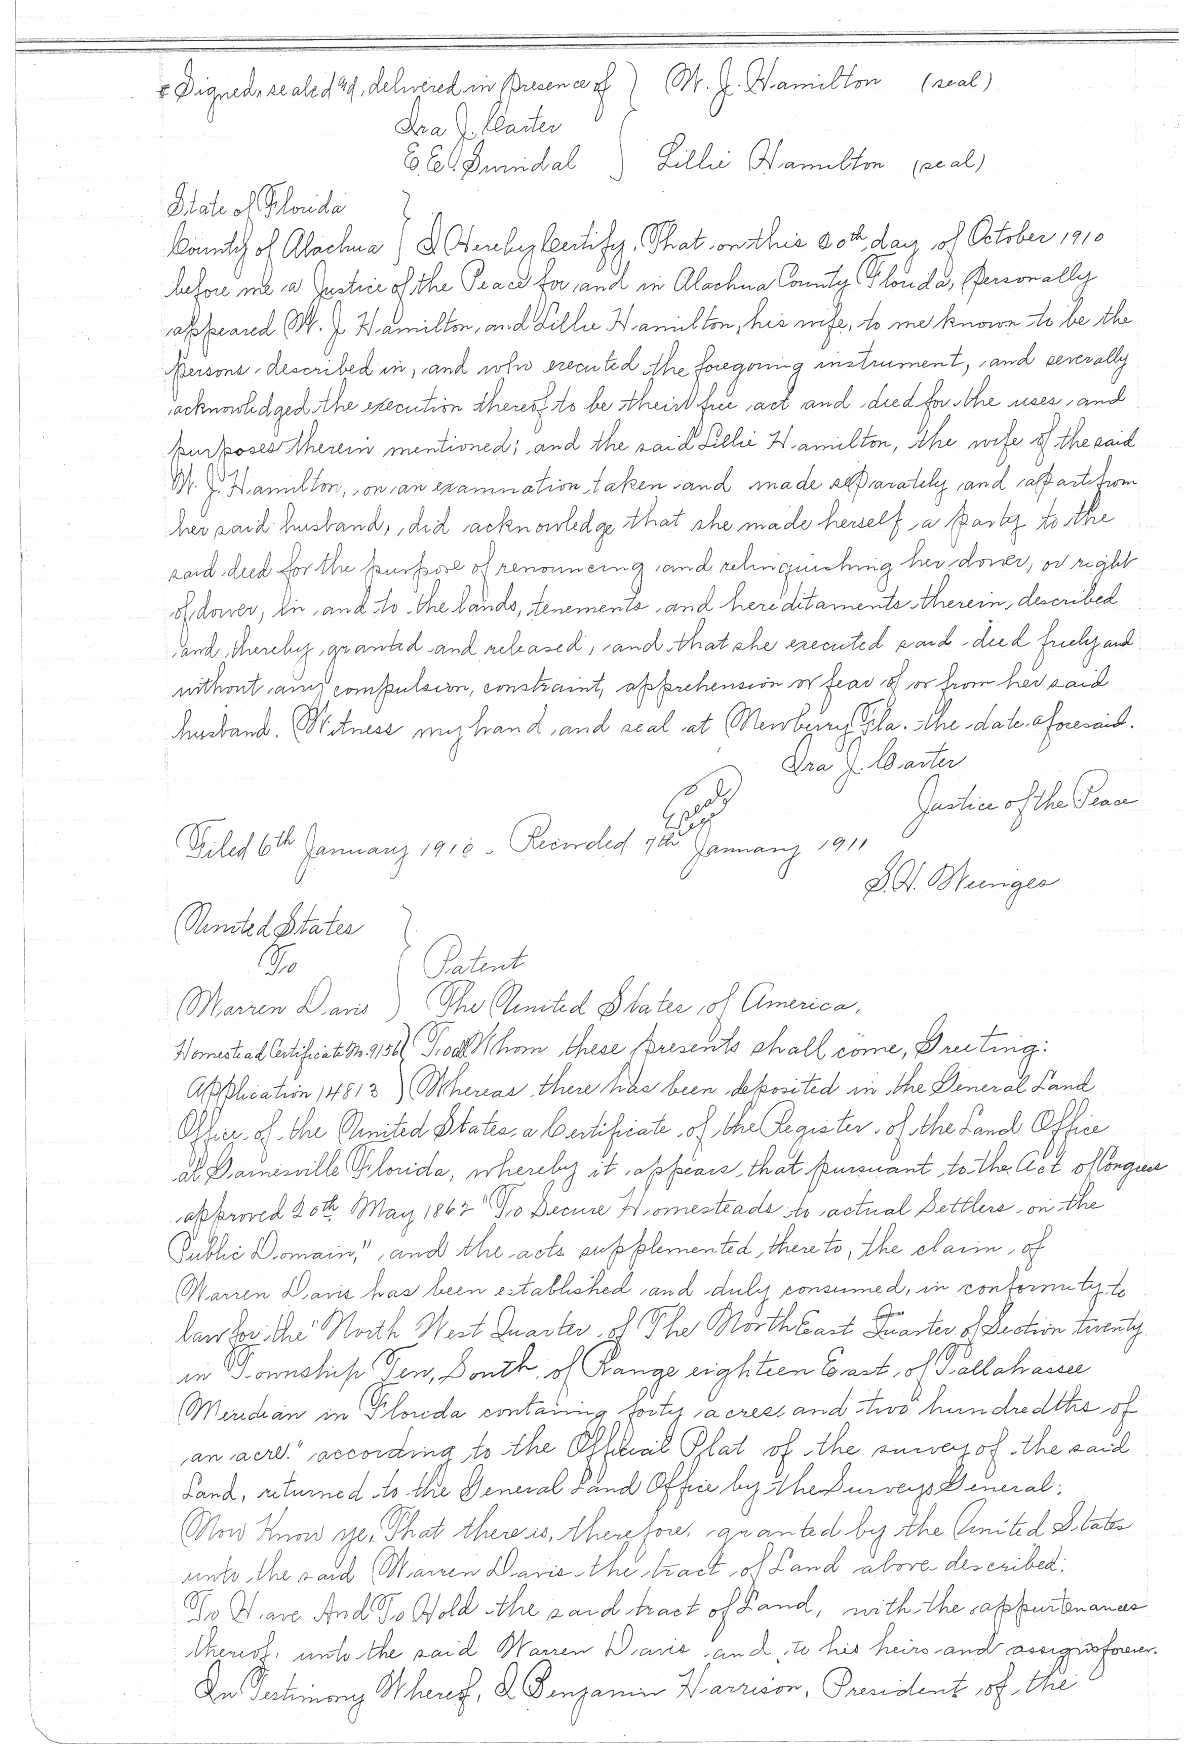 Signed, sealed and, delivered in presence of } W. J. Hamilton (seal)
Ira J. Carter
E. E. Swindal } Lillie Hamilton (seal)
State of Florida }
County of Alachua } I Hereby Certify, That on this 20th day of October 1910
before me a Justice of the Peace for and in Alachua County Florida, Personally
appeared W. J. Hamilton, and Lillie Hamilton, his wife, to me known to be the
persons described in, and who executed the foregoing instrument, and severally
acknowledged the execution thereof to be their free act and deed for the uses and
purposes therein mentioned; and the said Lillie Hamilton, the wife of the said
W. J. Hamilton, on an examnation taken and made separately and apart from
her said husband, did acknowledge that she made herself a party to the
said deed for the purpose of renouncing and relinquishing her dower, or right
of dower, in and to the lands, tenements and hereditaments therein, described
and thereby granted and released, and that she executed said deed freely and
without any compulsion, constraint, apprehension or fear of or from her said
husband. Witness my hand and seal at Newberry, Fla. the date aforesaid.
Ira J. Carter
Justice of the Peace
Filed 6th January 1910 - Recorded 7th January 1911
S. H. Wienges
United States }
To } Patent
Warren Davis ) The United States of America,
Homestead Certificate No. 9156 } To all Whom these presents shall come, Greeting:
Application 14813 ) Whereas there has been deposited in the General Land
Office of the United States a Certificate of the Register of the Land Office
at Gainesville Florida, whereby it appears that pursuant to the Act of Congress
approved 20th May 1862 "To Secure Homesteads to actual Settlers on the
Public Domain," and the acts supplemented thereto, the claim of
Warren Davis has been established and duly consumed, in conformity to
law for the "North West Quarter of The North East Quarter of Section twenty
in Township Ten, South of Range eighteen East of Tallahassee
Meridian in Florida containing forty acres and two hundredths of
an acre." according to the Official Plat of the survey of the said
Land, returned to the General Land Office by the Surveys General:
Now Know ye, That there is, therefore, granted by the United States
unto the said Warren Davis the tract of Land above described:
To Have And To Hold the said tract of Land, with the appurtenances
thereof, unto the said Warren Davis and to his heirs and assigns forever.
In Testimony Wherof, I Benjamin Harrison, President of the